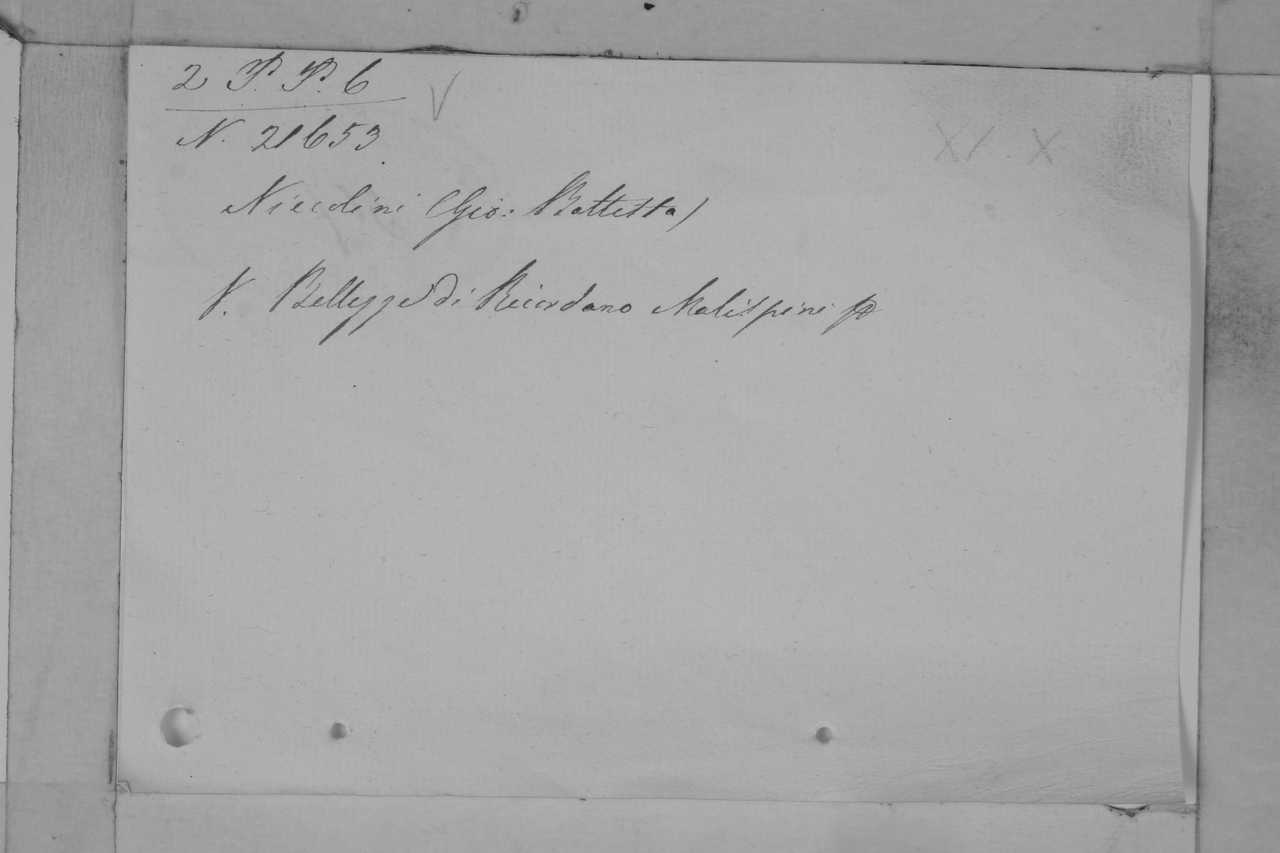 2 P. P. 6 V
N. 21653.
XI . X
Niccolini (Gio: Battista)
V. Bellezze di Ricordano Malispini